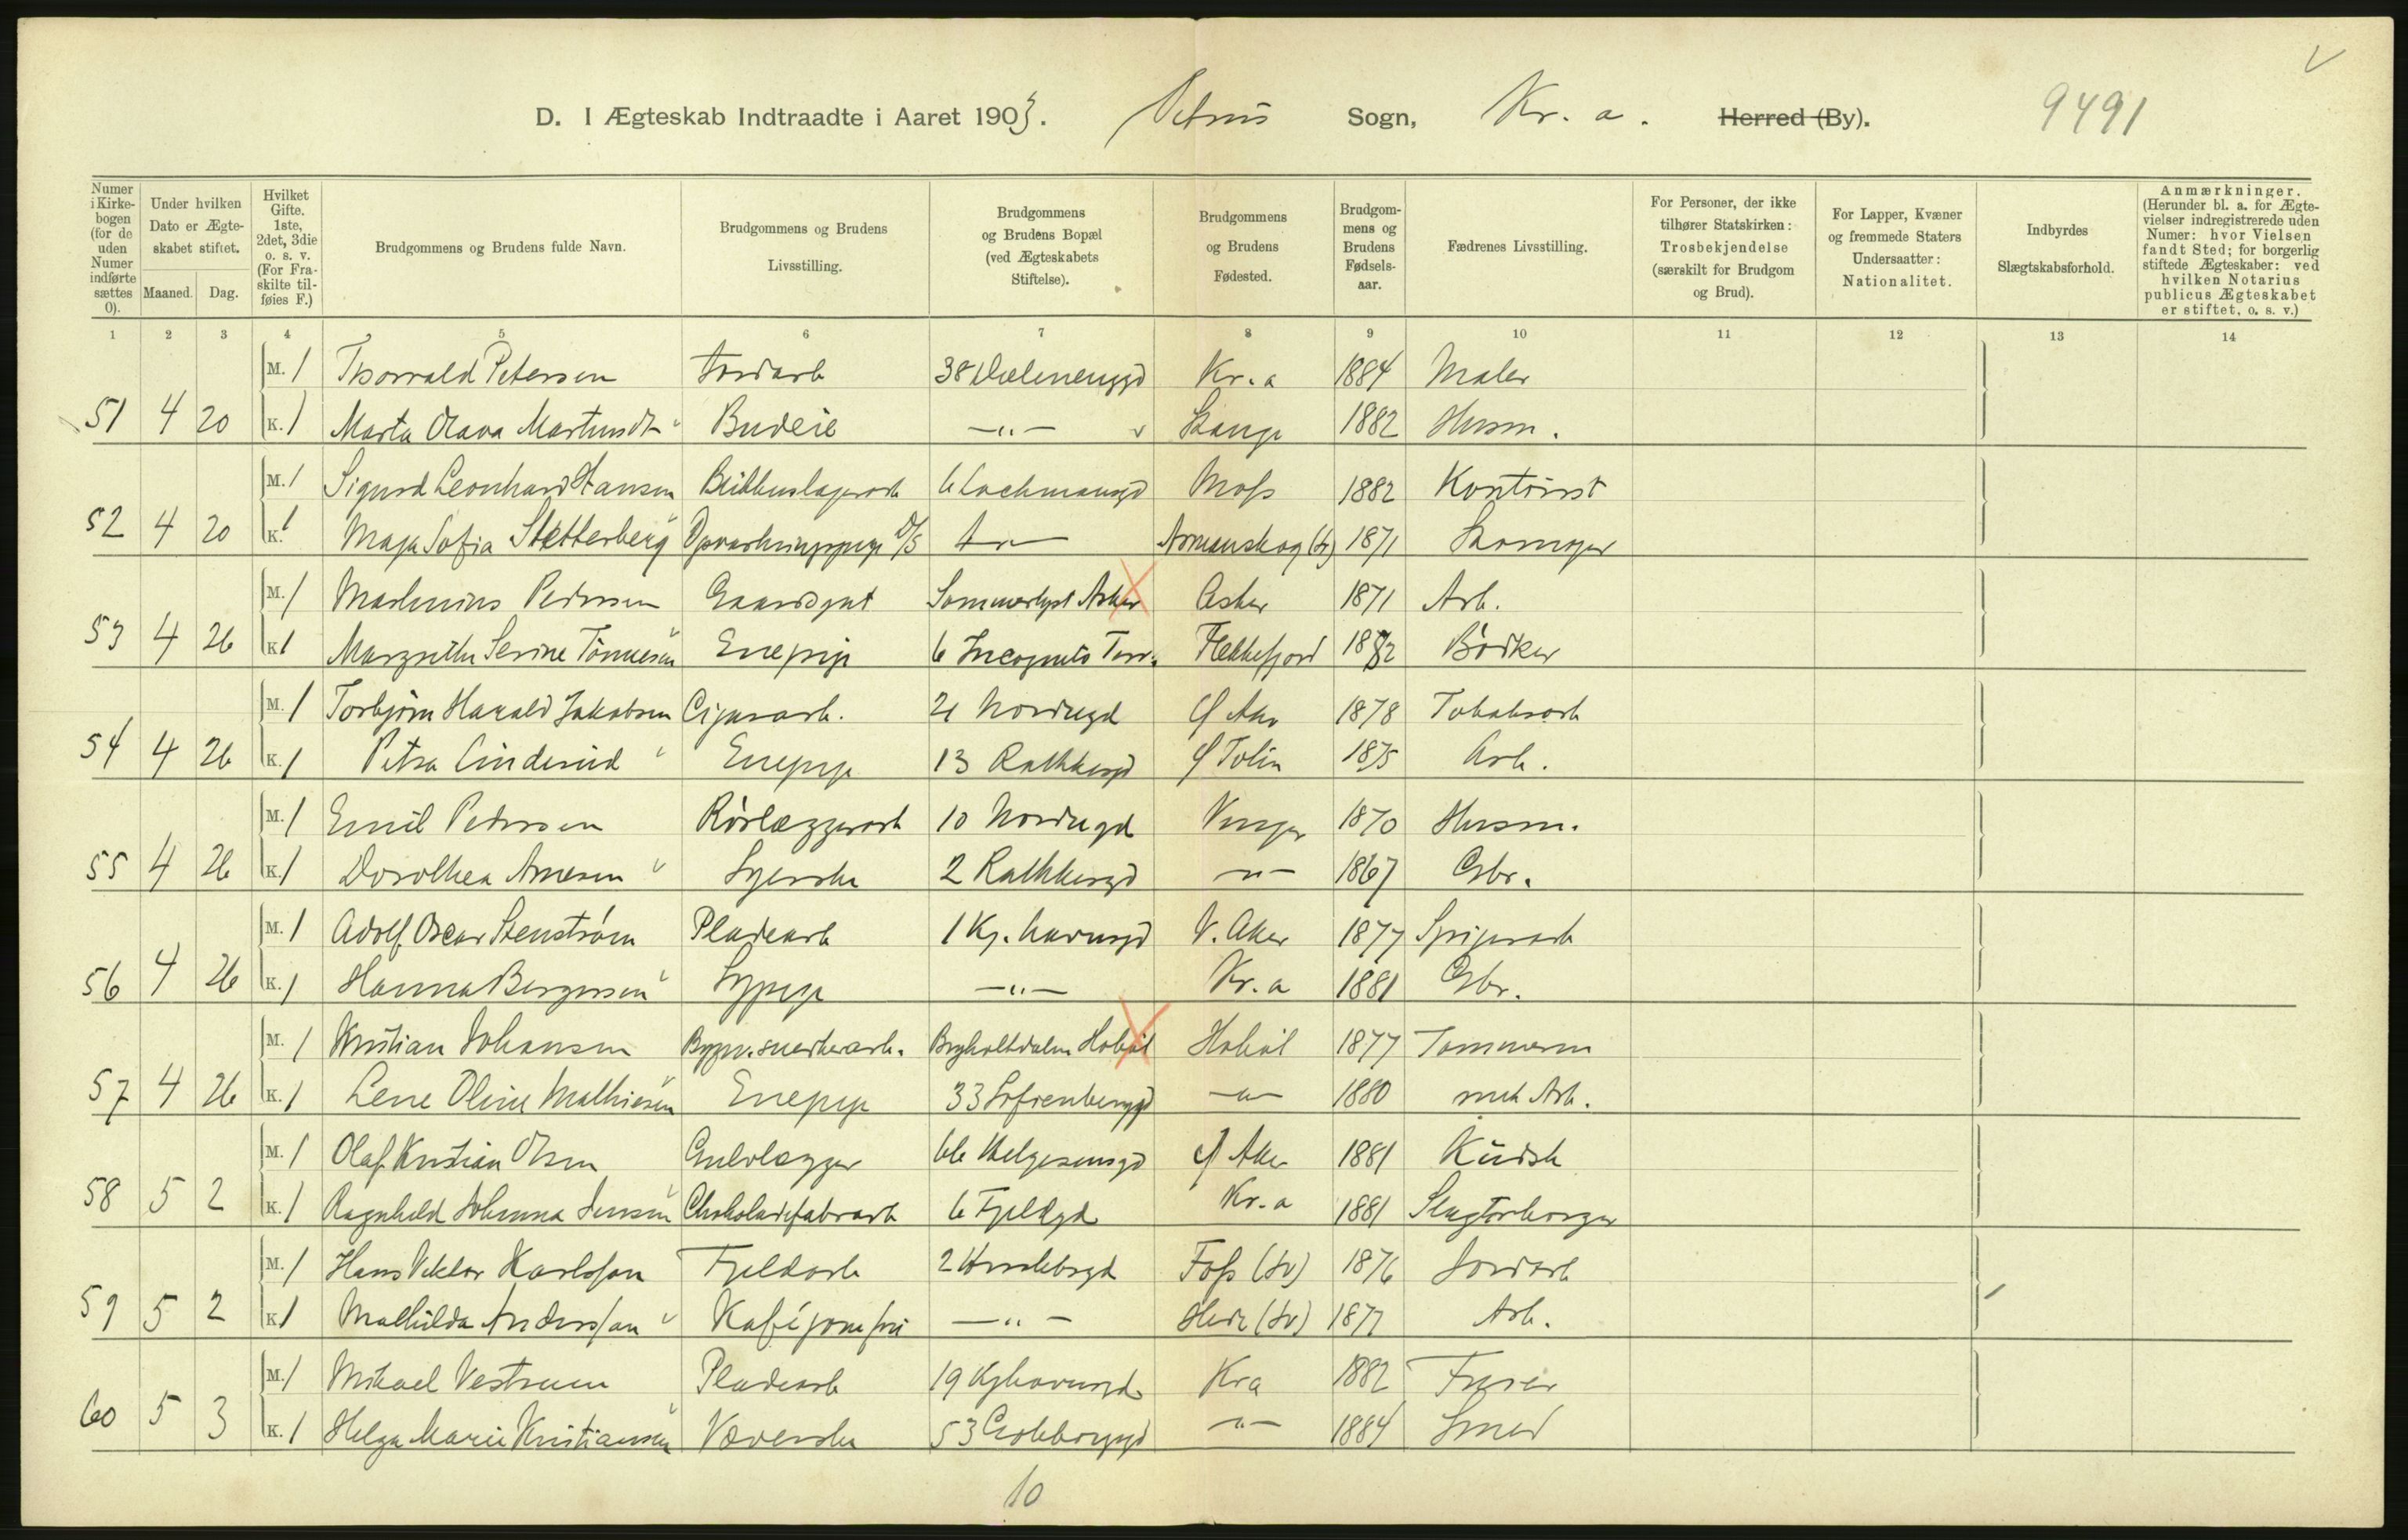 D. I Ægteskab Indtraadte i Aaret 1903. Petrus Sogn, Kr. a. Herred (By). 9491
Numer i Kirke-bogen (for de uden Numer indførte sættes 0).
Under hvilken Dato er Ægte-skabet stiftet.
Maaned. Dag.
Hvilket Gifte. 1ste, 2det, 3die o. s. v. (For Fra-skilte til-føies F.)
Brudgommens og Brudens fulde Navn.
Brudgommens og Brudens Livsstilling.
Brudgommens og Brudens Bopæl (ved Ægteskabets Stiftelse).
Brudgommens og Brudens Fødested.
Brudgom-mens og Brudens Fødsels-aar.
Fædrenes Livsstilling.
For Personer, der ikke tilhører Statskirken: Trosbekjendelse (særskilt for Brudgom og Brud).
For Lapper, Kvæner og fremmede Staters Undersaatter: Nationalitet.
Indbyrdes Slægtskabsforhold.
Anmærkninger. (Herunder bl. a. for Ægte-vielser indregistrerede uden Numer: hvor Vielsen fandt Sted; for borgerlig stiftede Ægteskaber: ved hvilken Notarius publicus Ægteskabet er stiftet, o. s. v.)
1 2 3 4 5 6 7 8 9 10 11 12 13 14
M. 1 Thorvald Petersen Jordarb 38 Dælenenggd Kr. a 1884 Maler
51 4 20 K. 1 Marta Olava Budeie —"— Stange 1882 Husm.
M. 1 Sigurd Leonhard Hansen Blikkenslagerarb 6 Lachmansgd Moss 1882 Kontorist
52 4 20 K. 1 Maja Sofia 1871
M. 1 Martinius Pedersen Gaardsgut Sommerlyst Asker Asker 1871 Arb.
53 4 26 K. 1 Margrethe Serine Tönnesen Enepige 6 Incognito Terr. Flekkefjord 1882 Bödker
M. 1 Torbjørn Harald Jakobsen Cigararb. 21 Nordregd Ø Aker 1878 Tobaksarb
54 4 26 K. 1 Petra Linderud Enepige 13 Rathkesgd 1875 Arb.
M. 1 Emil Pedersen Rörlæggerarb 10 Nordregd Vinger 1870 Husm.
55 4 26 K. 1 Dorothea Arnesen Syerske 2 Rathkesgd —"— 1867 Gbr.
M. 1 Adolf Oscar Stenström Pladearb 1 Kj. havnsgd V. Aker 1877 Spigerarb
56 4 26 K. 1 Hanna Bergersen Sypige —"— Kr. a 1881 Gbr.
M. 1 Kristian Johansen Bygn. snekerarb. Hoböl Hoböl 1877 Tömmerm
57 4 26 K. 1 Lene Oline Mathiesen Enepige 33 Sofienberggd —"— 1880 mek Arb.
M. 1 Olaf Kristian Olsen Gulvlægger 66 Helgesensgd Ø Aker 1881 Kudsk
58 5 2 K. 1 Ragnhild Johanna Jensen Chokoladefabrarb 6 Fjeldgd Kr. a 1881 Slagterborger
M. 1 Hans Viktor Karlsson Fjeldarb Foss (Sv) 1876 Jordarb
59 5 2 K. 1 Mathilda Andersson Kaféjomfru —"— Hede (Sv) 1877 Arb.
M. 1 Mikael Vestrum Pladearb 19 Kjhavnsgd Kra 1882 Murer
60 5 3 K. 1 Helga Marie Kristiansen Væverske 53 —"— 1884 Smed
10